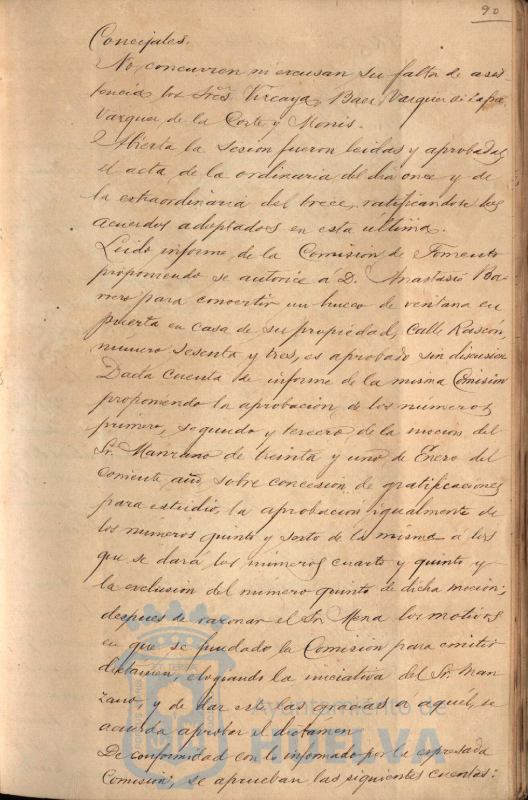 90
Concejales.
No concurren ni excusan su falta de asis-
tencia los Sres. Vizcaya, Baer, Vazquez de Zafra
Vazquez de la Corte y Monis.
Abierta la sesion fueron leidas y aprobadas
el acta de la ordinaria del dia once y de
la extraordinaria del trece, ratificandose los
acuerdos adoptados en esta ultima.
Leido informe de la Comision de Fomento
proponiendo se autorice a D. Anastasio Ba-
rrero para convertir un hueco de ventana en
puerta en casa de su propiedad, calle Rascón,
numero sesenta y tres, es aprobado sin discusion
Dada cuenta de informe de la misma Comision
proponiendo la aprobacion de los números
primero, segundo y tercero de la mocion del
Sr. Manzano de treinta y uno de Enero del
corriente año, sobre concesion de gratificaciones
para estudio, la aprobacion igualmente de
los números quinto y sexto de la misma a los
que se dará los números cuarto y quinto y
la exclusion del número quinto de dicha mocion;
despues de razonar el Sr. Mena los motivos
en que se ha fundado la Comision para emitir
dictamen, elogiando la iniciativa del Sr. Man-
zano, y de dar este las gracias a aquél, se
acuerda aprobar el dictámen
De conformidad con lo informado por la expresada
Comision, se aprueban las siguientes cuentas:
Ayuntamiento de
HUELVA